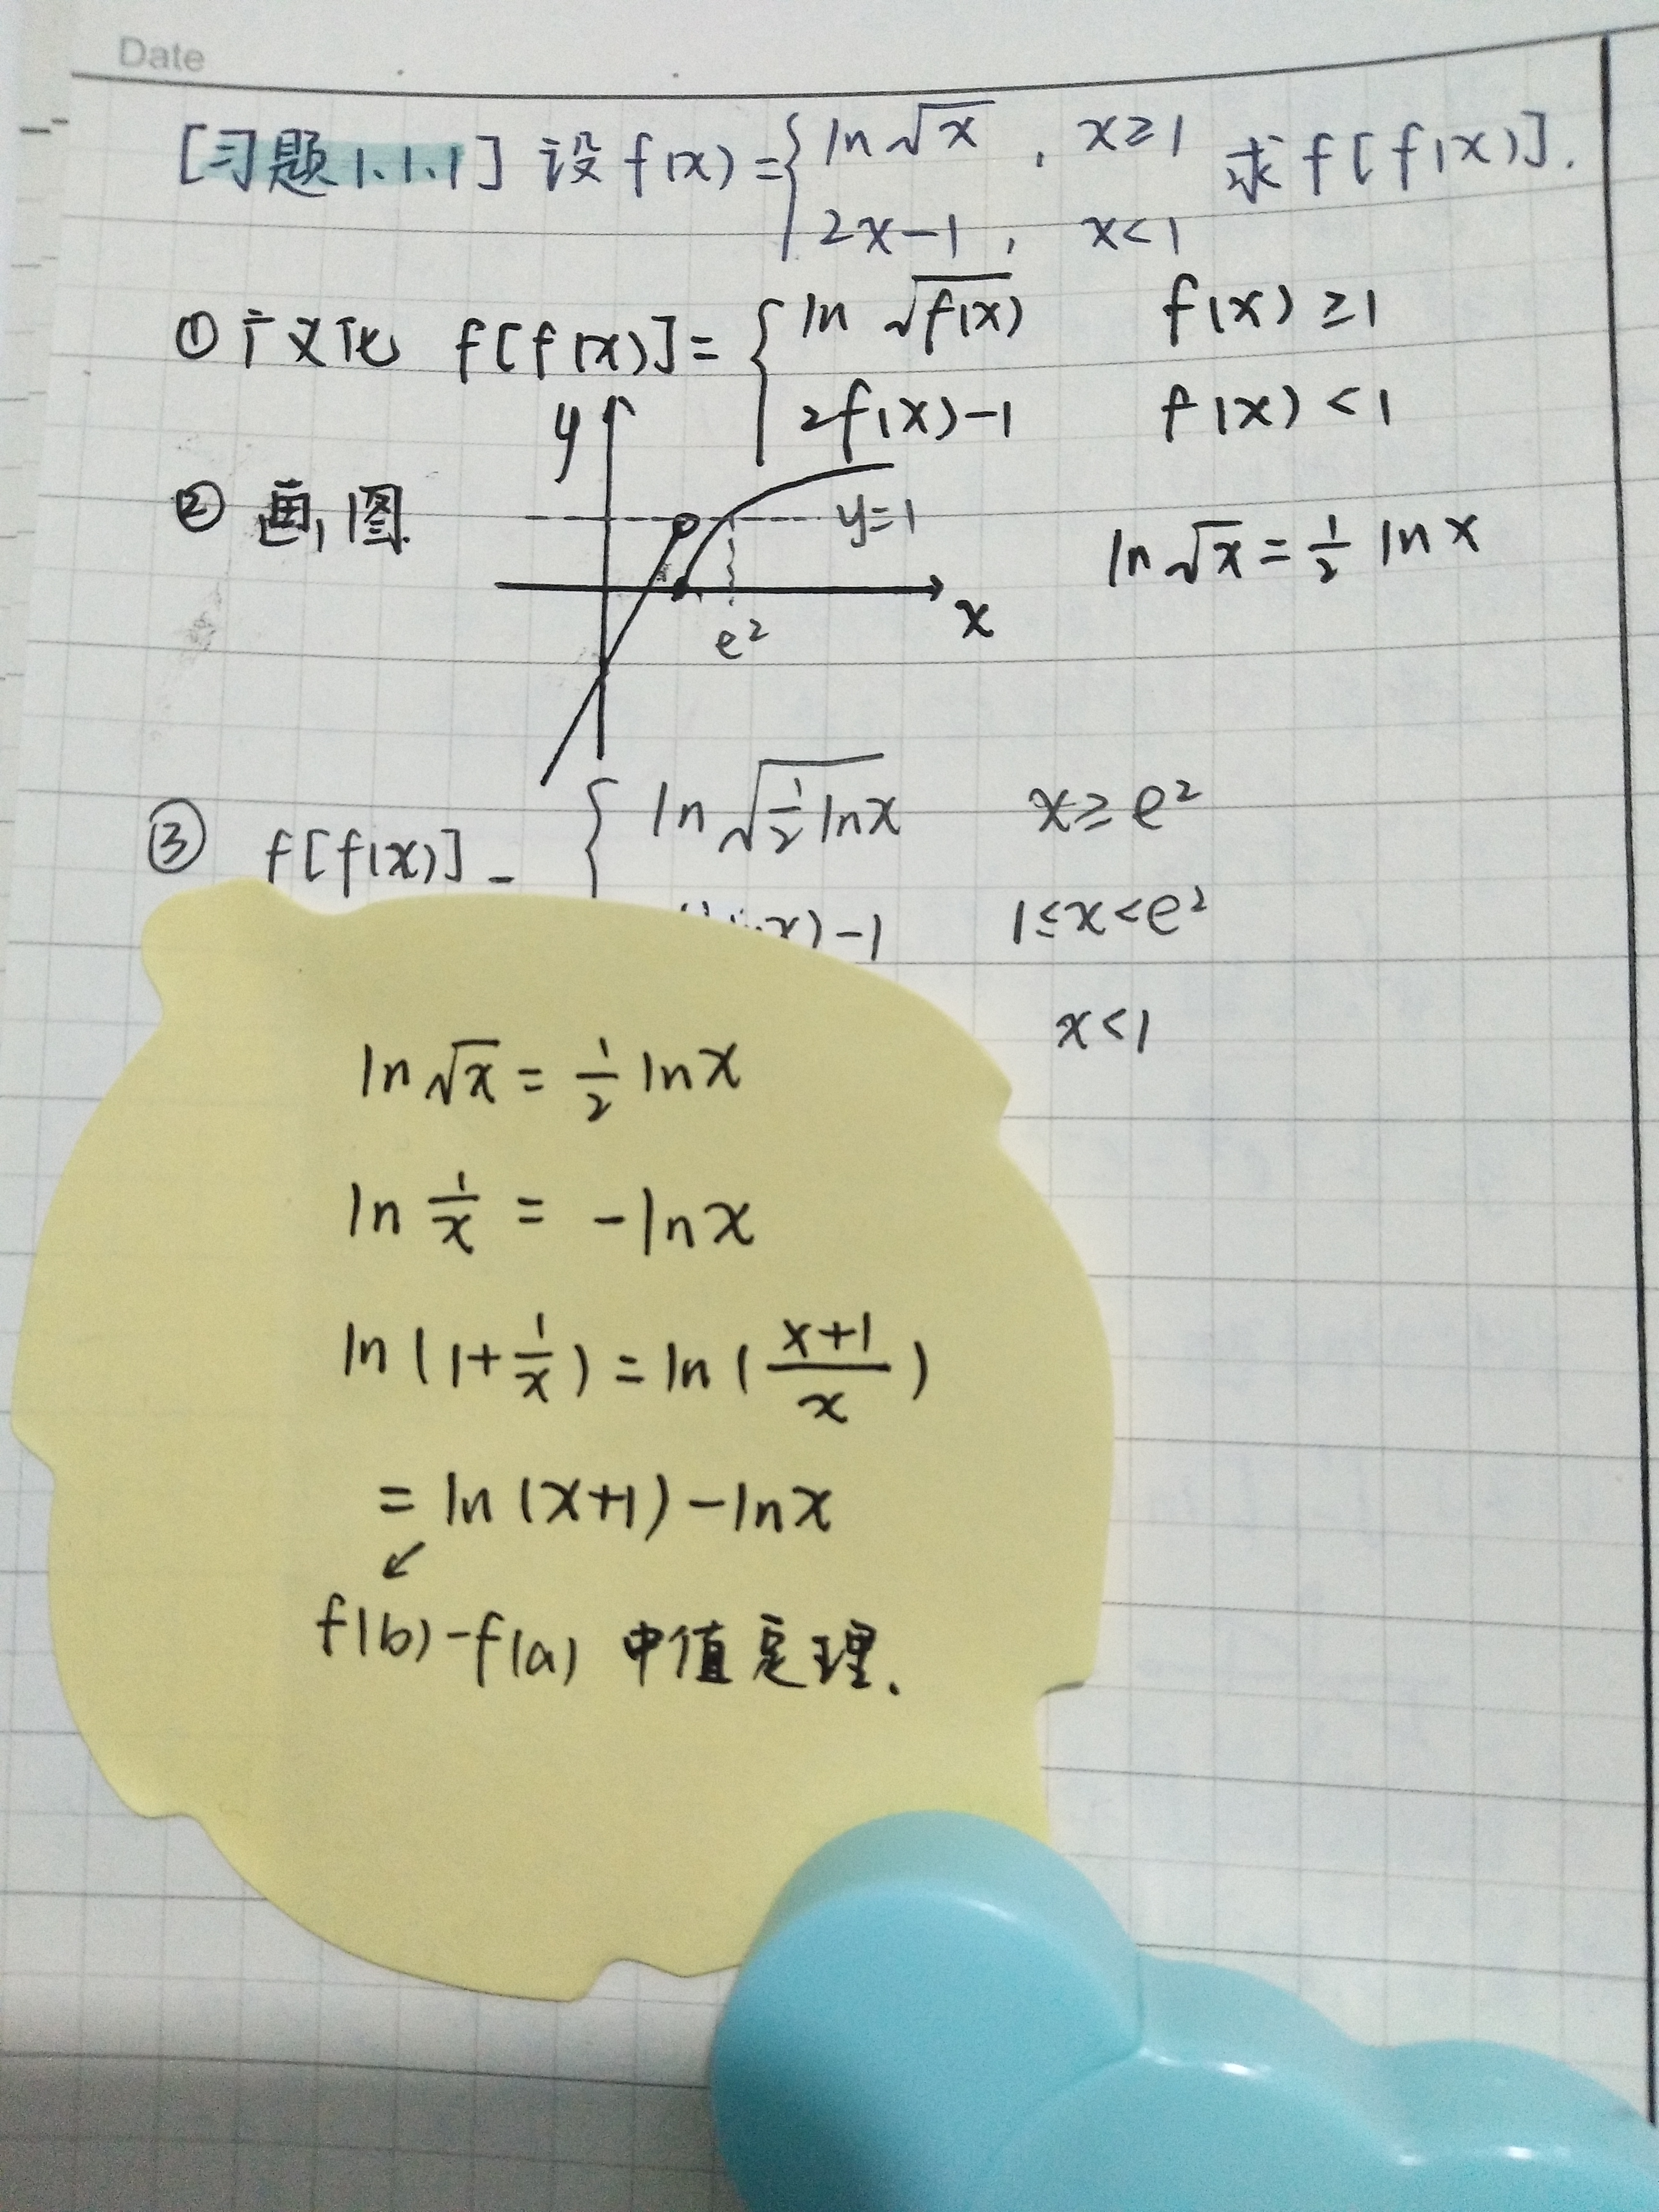 Date
[习题1.1.1] 设 f(x) = { ln√x , x≥1 求 f[f(x)].
2x-1 , x<1
① 广义化 f[f(x)] = { ln √f(x) f(x) ≥1
2f(x)-1 f(x) <1
② 画图
y
y=1
ln√x = 1/2 ln x
x
e²
③ f[f(x)] = { ln√(1/2 lnx) x≥e²
x)-1 1≤x<e²
x<1
ln√x = 1/2 lnx
ln 1/x = -lnx
ln(1+1/x) = ln((x+1)/x)
= ln(x+1) - lnx
↙
f(b)-f(a) 中值定理.